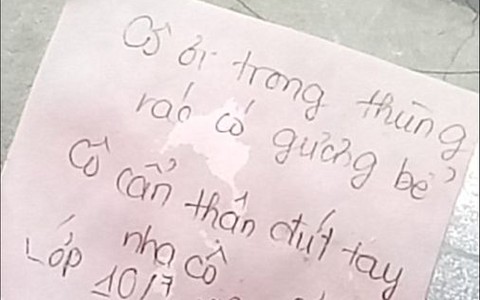 Cô ơi trong thùng
rác có gương bể
Cô cẩn thận đứt tay
nha cô
Lớp 10/7